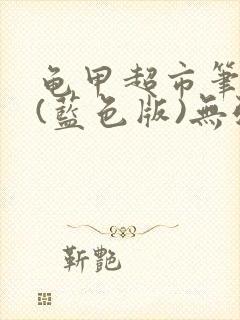 龟甲超市筆
(藍色版)無
靳艷